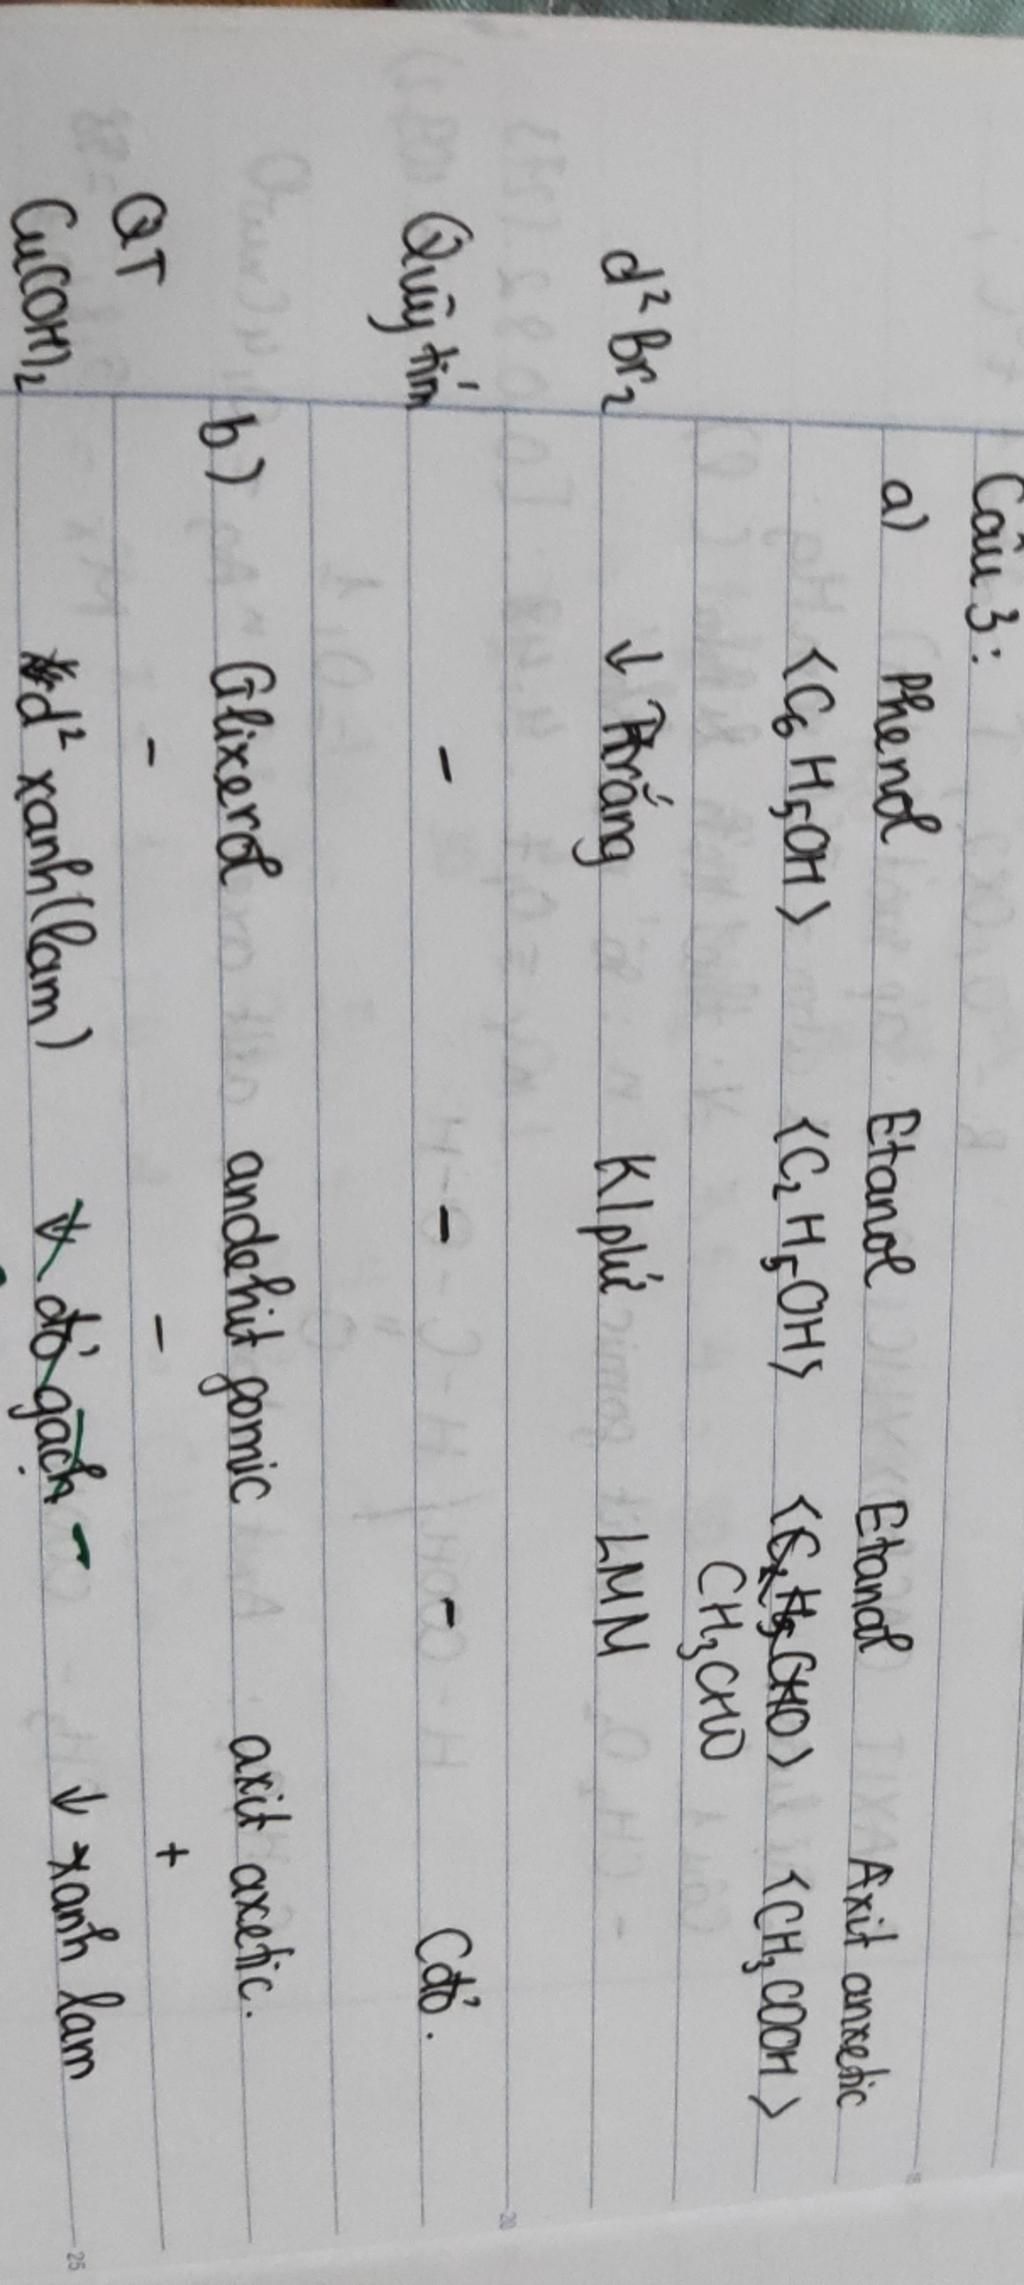 Câu 3:
a) Phenol Etanol Etanal Axit anxetic
<C6H5OH> <C2H5OH> <C2H5CHO> <CH3COOH>
CH3CHO
d² Br2 ↓ Trắng K/phứ LMN
Quỳ tím - - - Cđỏ.
b) Glixerol andehit fomic axit axetic.
QT - - +
Cu(OH)2 d² xanh (lam) ↓ đỏ gạch - ↓ xanh lam